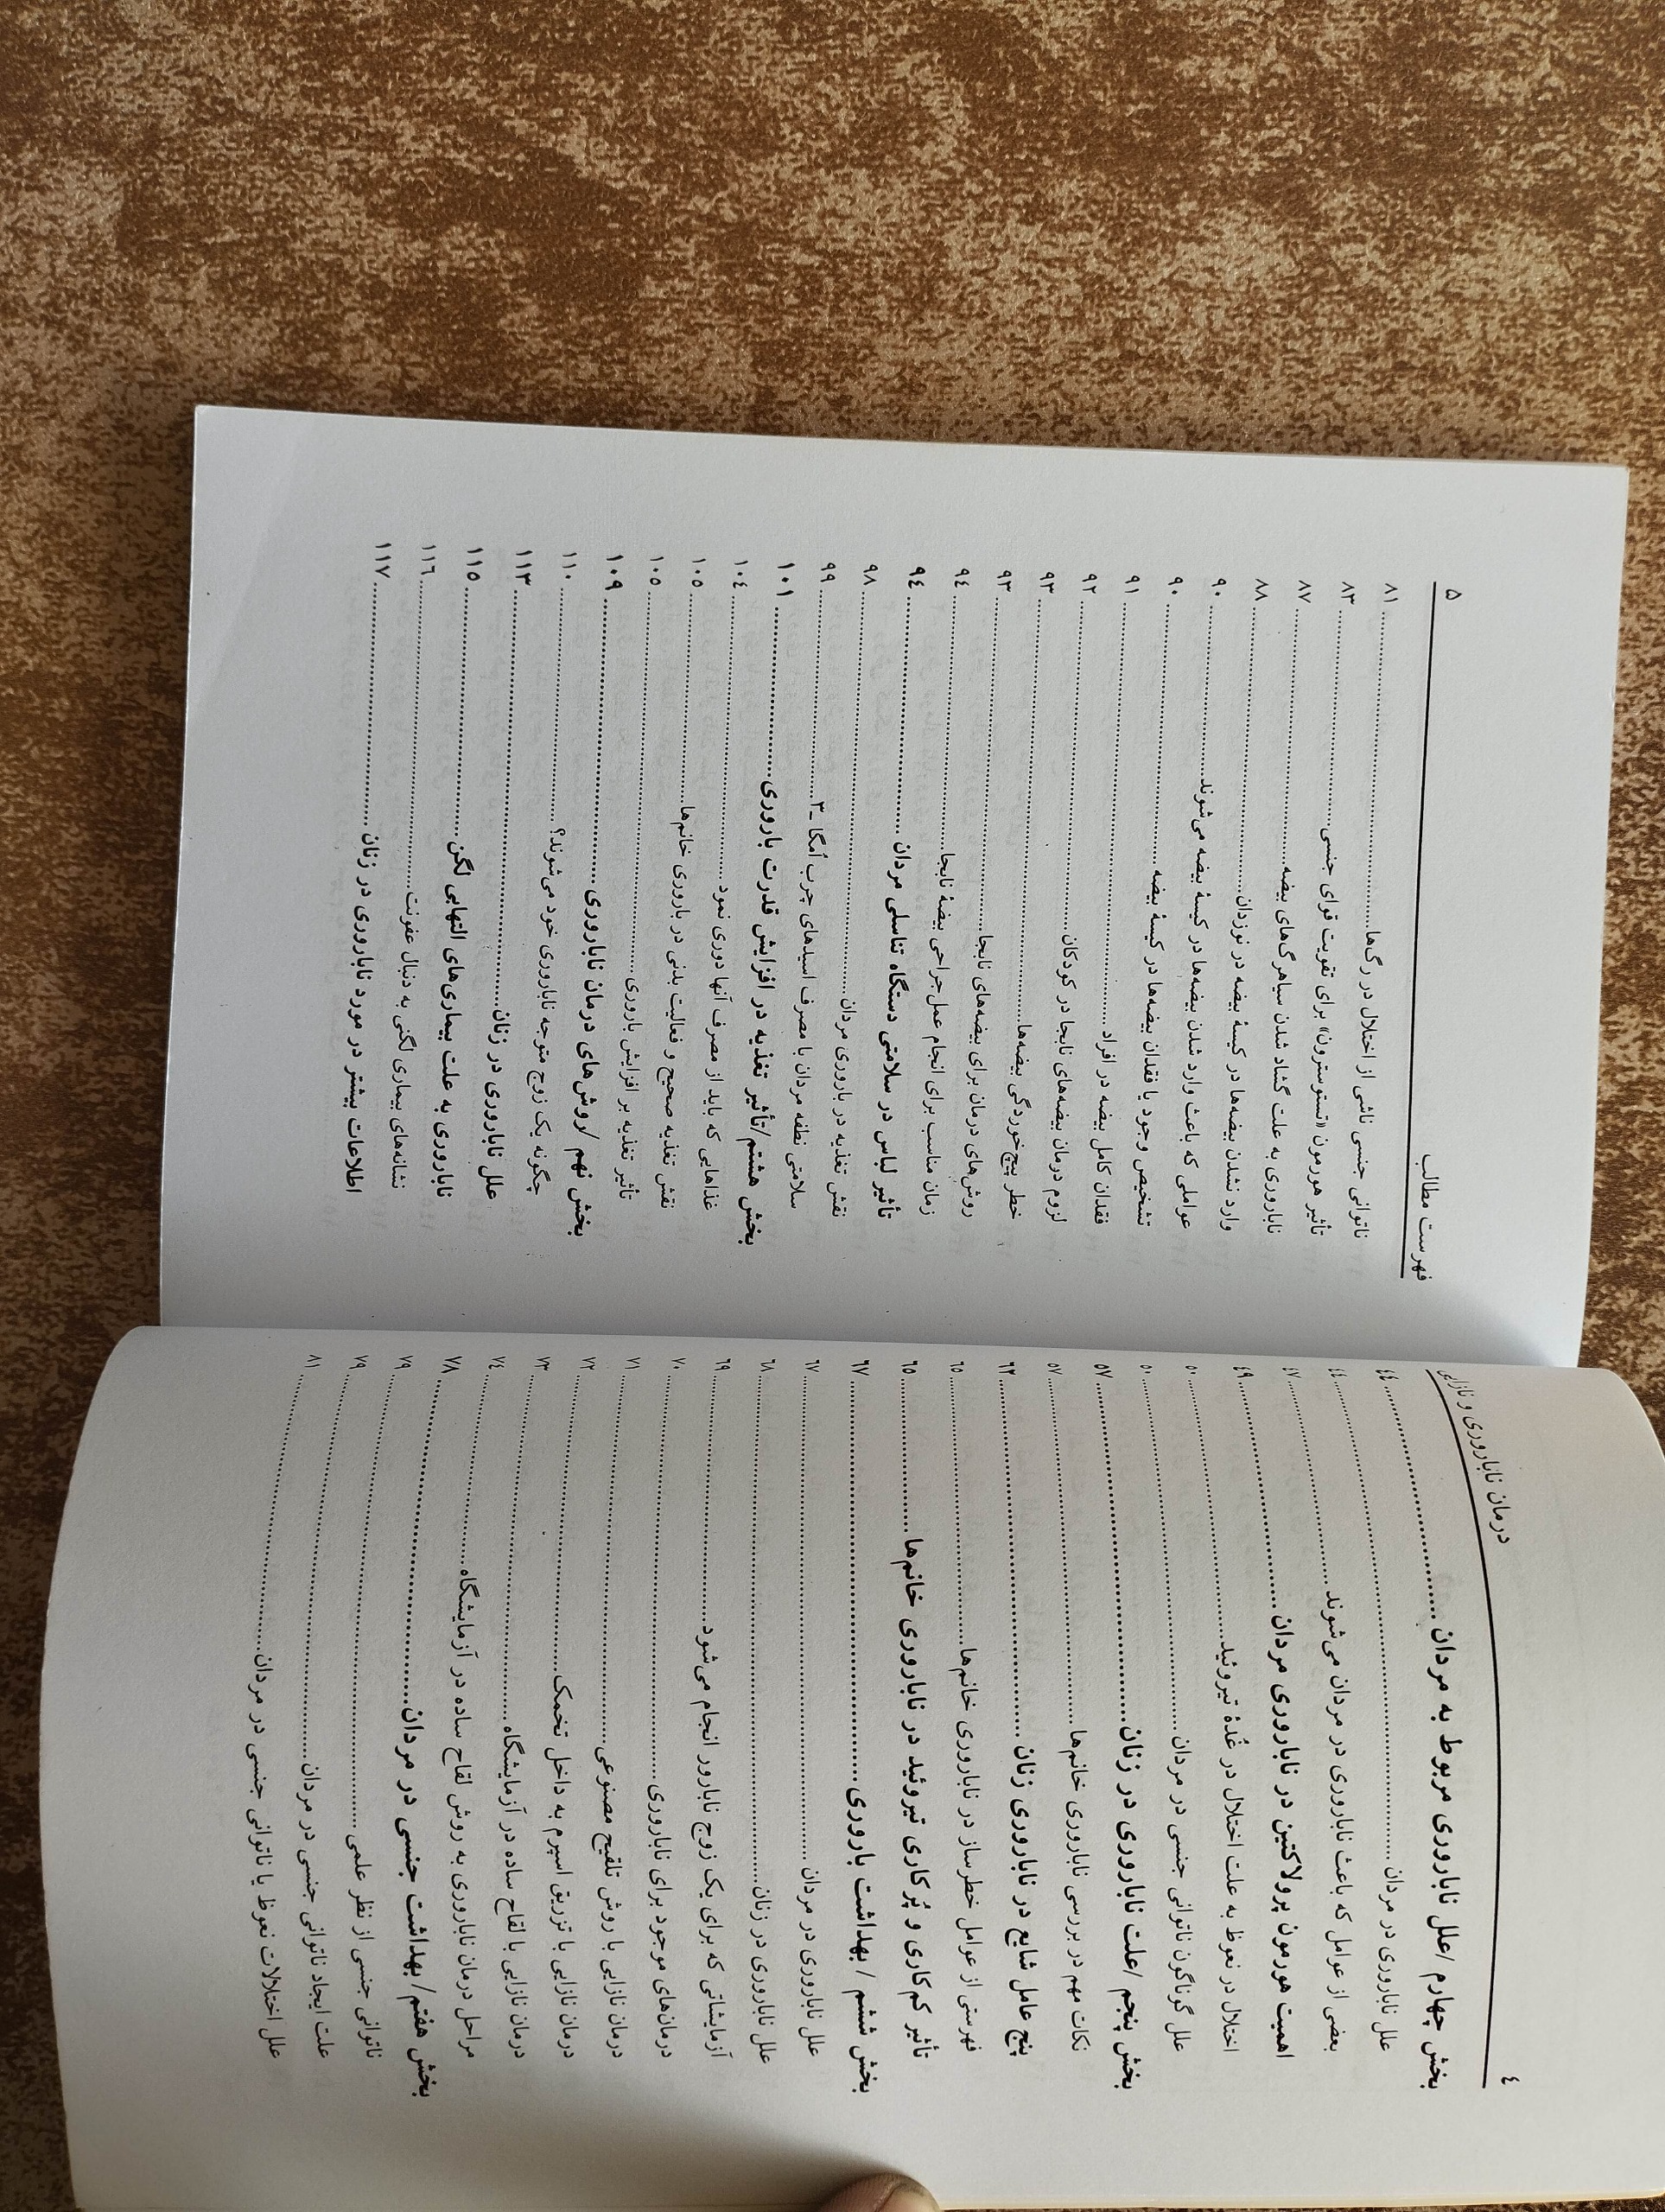 ٤ درمان ناباروری و نازایی
بخش چهارم /علل ناباروری مربوط به مردان .......... ٤٤
علل ناباروری در مردان .......... ٤٤
بعضی از عوامل که باعث ناباروری در مردان می‌شوند .......... ٤٧
اهمیت هورمون پرولاکتین در ناباروری مردان .......... ٤٩
اختلال در نعوظ به علت اختلال در غُدهٔ تیروئید .......... ٥٠
علل گوناگون ناتوانی جنسی در مردان .......... ٥٠
بخش پنجم /علت ناباروری در زنان .......... ٥٧
نکات مهم در بررسی ناباروری خانم‌ها .......... ٥٧
پنج عامل شایع در ناباروری زنان .......... ٦٣
فهرستی از عوامل خطرساز در ناباروری خانم‌ها .......... ٦٥
تأثیر کم‌کاری و پُرکاری تیروئید در ناباروری خانم‌ها .......... ٦٥
بخش ششم / بهداشت باروری .......... ٦٧
علل ناباروری در مردان .......... ٦٧
علل ناباروری در زنان .......... ٦٨
آزمایشاتی که برای یک زوج نابارور انجام می‌شود .......... ٦٩
درمان‌های موجود برای ناباروری .......... ٧٠
درمان نازایی با روش تلقیح مصنوعی .......... ٧١
درمان نازایی با تزریق اسپرم به داخل تخمک .......... ٧٢
درمان نازایی با لقاح ساده در آزمایشگاه .......... ٧٣
مراحل درمان ناباروری به روش لقاح ساده در آزمایشگاه .......... ٧٤
بخش هفتم/ بهداشت جنسی در مردان .......... ٧٨
ناتوانی جنسی از نظر علمی .......... ٧٩
علت ایجاد ناتوانی جنسی در مردان .......... ٧٩
علل اختلالات نعوظ یا ناتوانی جنسی در مردان .......... ٨١
فهرست مطالب ۵
ناتوانی جنسی ناشی از اختلال در رگ‌ها .......... ٨١
تأثیر هورمون «تستوسترون» برای تقویت قوای جنسی .......... ٨٣
ناباروری به علت گشاد شدن سیاهرگ‌های بیضه .......... ٨٧
وارد نشدن بیضه‌ها در کیسهٔ بیضه در نوزدان .......... ٨٨
عواملی که باعث وارد شدن بیضه‌ها در کیسهٔ بیضه می‌شوند .......... ٩٠
تشخیص وجود یا فقدان بیضه‌ها در کیسهٔ بیضه .......... ٩٠
فقدان کامل بیضه در افراد .......... ٩١
لزوم درمان بیضه‌های نابجا در کودکان .......... ٩٢
خطر پیچ‌خوردگی بیضه‌ها .......... ٩٣
روش‌های درمان برای بیضه‌های نابجا .......... ٩٣
زمان مناسب برای انجام عمل جراحی بیضهٔ نابجا .......... ٩٤
تأثیر لباس در سلامتی دستگاه تناسلی مردان .......... ٩٤
نقش تغذیه در باروری مردان .......... ٩٨
سلامتی نطفه مردان با مصرف اسیدهای چرب اُمگا ـ٣ .......... ٩٩
بخش هشتم/تأثیر تغذیه در افزایش قدرت باروری .......... ١٠١
غذاهایی که باید از مصرف آنها دوری نمود .......... ١٠٤
نقش تغذیه صحیح و فعالیت بدنی در باروری خانم‌ها .......... ١٠٥
تأثیر تغذیه بر افزایش باروری .......... ١٠٥
بخش نهم /روش‌های درمان ناباروری .......... ١٠٩
چگونه یک زوج متوجه ناباروری خود می‌شوند؟ .......... ١١٠
علل ناباروری در زنان .......... ١١٣
ناباروری به علت بیماری‌های التهابی لگن .......... ١١٥
نشانه‌های بیماری لگنی به دنبال عفونت .......... ١١٦
اطلاعات بیشتر در مورد ناباروری در زنان .......... ١١٧